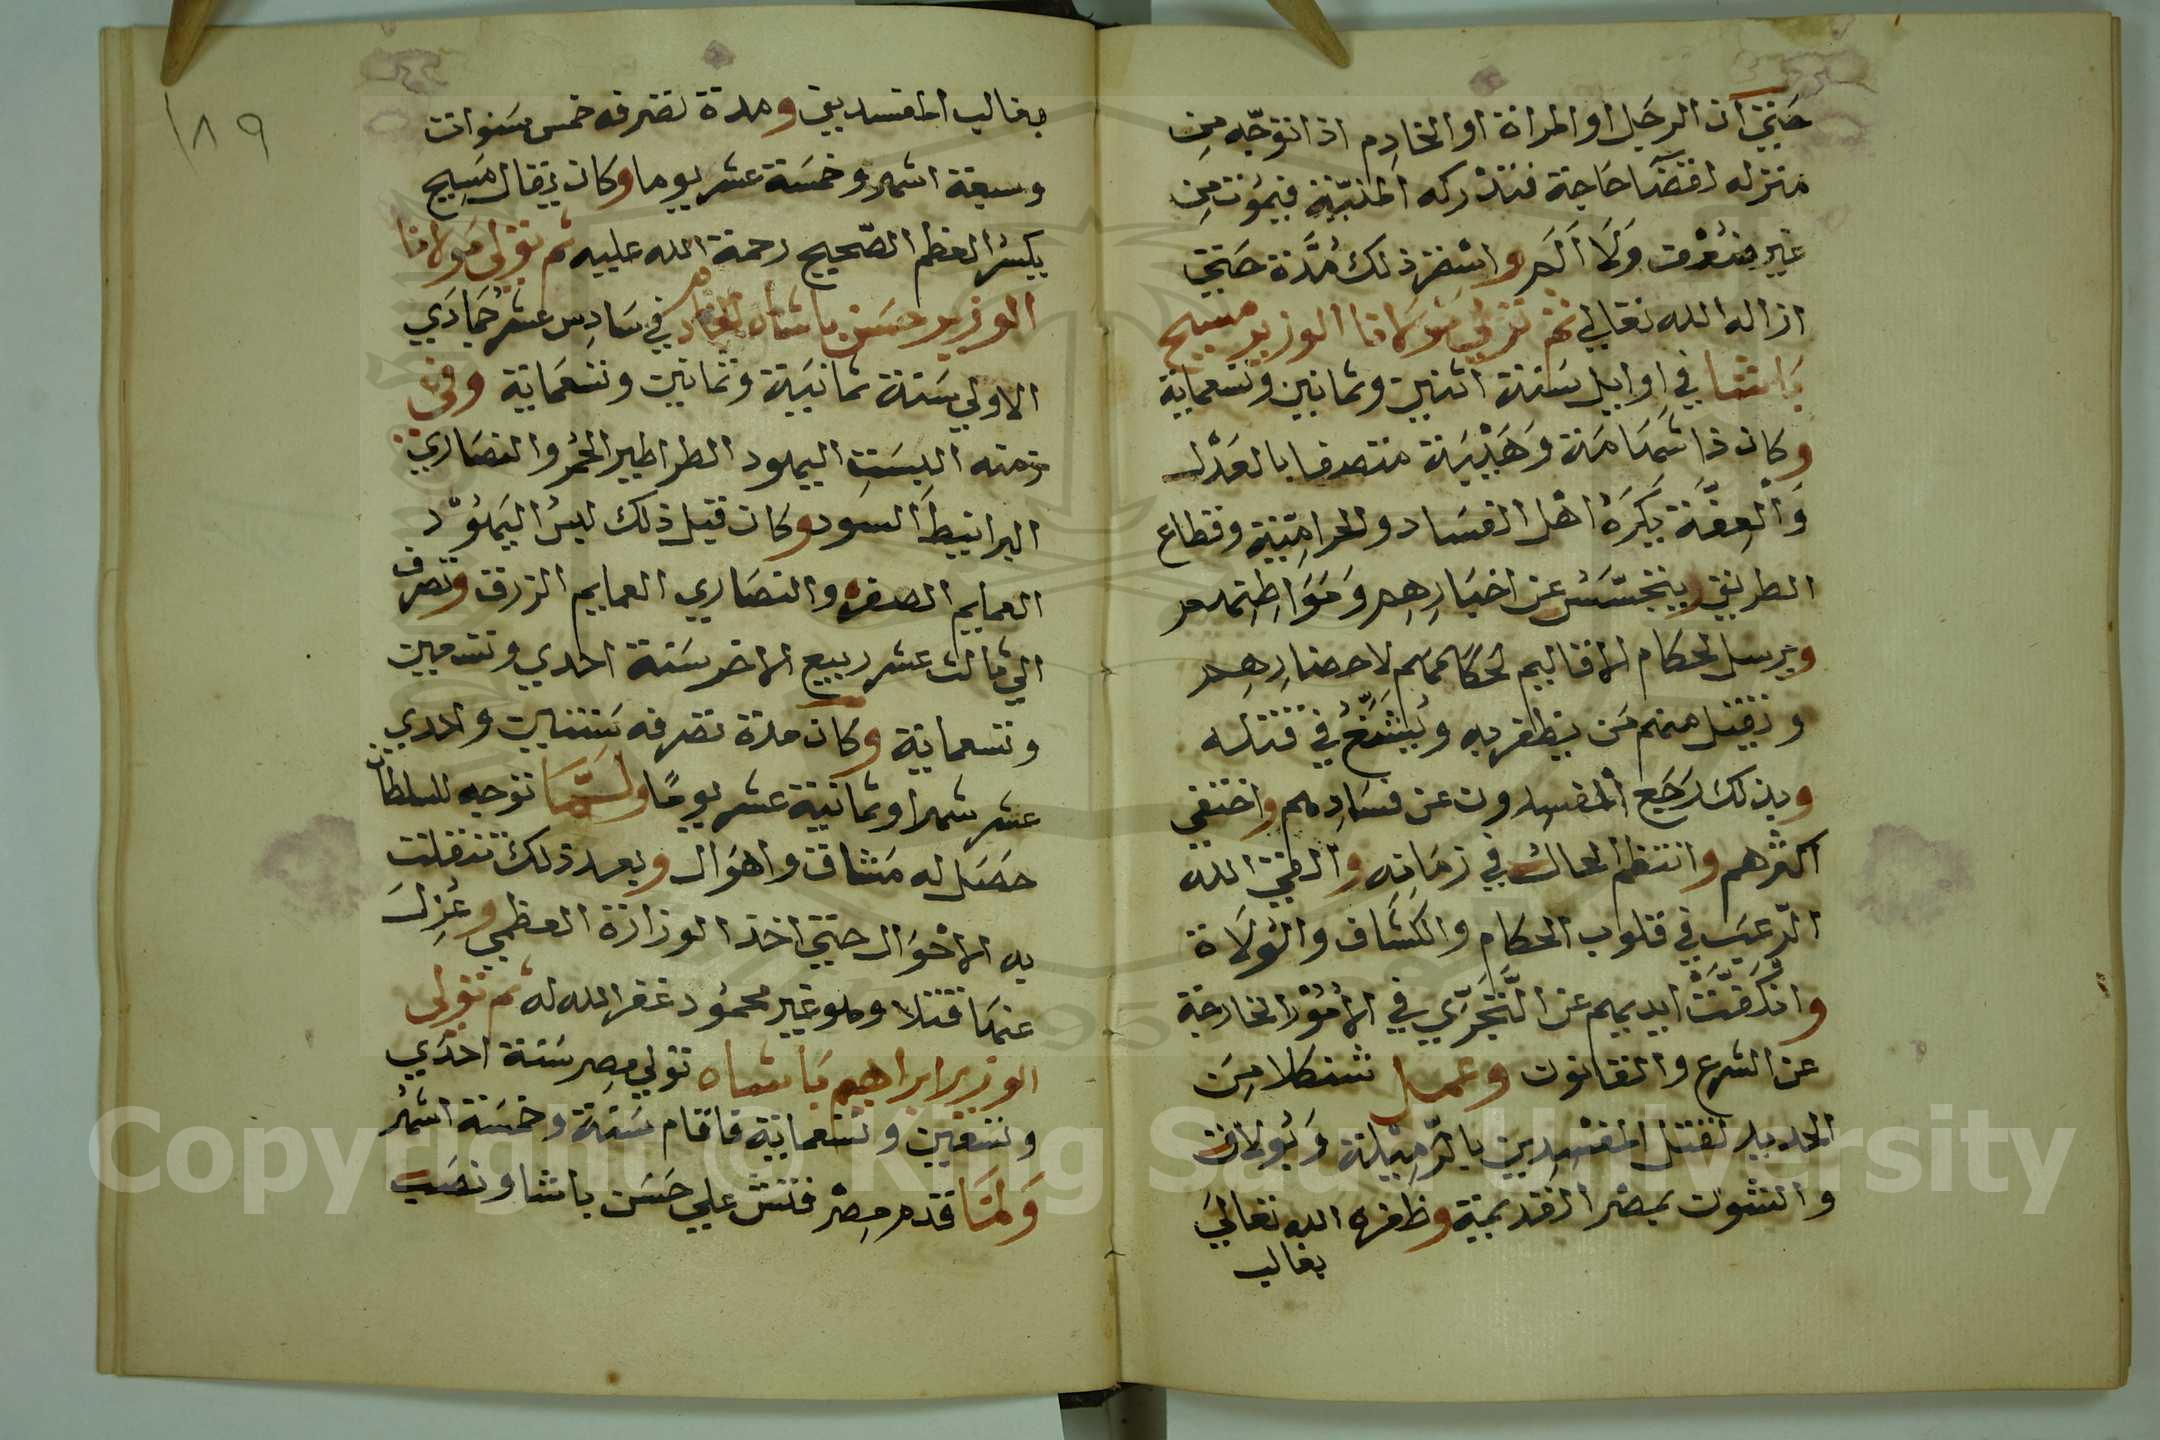 حَتي ان الرجَل او المراة او الخادِم اذا توجّه مِن
منزله لقضَآ حَاجة فتدركه المنيّة فيمُوت مِن
غير ضعْف وَلَا اَلَم واستمر ذلك مُدّة حَتي
ازاله الله تعالي ثم تولي مَولانا الوزير مسيح
بَاشا في اوايل سَنة اثنين وثمانين وتسعماية
وكان ذا شهَامَة وَهَيْبَة متصفا بالعَدْل
وَالعِفّة يَكرَهُ اهْل الفسَاد والحرامِيّة وقطاع
الطريق يتجسّسُ عن اخبَارِهِم وَمَوَاطِنِهم
ويرسل لحكام الاقاليم احكامهم لاحضارِهِم
ويقتل منهم مَن يظفر به ويُشنّعُ في قتله
وبذلك رَجَع المفسِدون عن فسَادِهم واختفي
اكثرهم وانتظم الحالُ في زمَانِه والقي الله
الرّعبَ في قلوب الحكام والكشّاف والوُلَاة
وانكَفّتْ ايديهم عن التّجَرّي في الامُوْر الخارجة
عن الشرع والقانون وعمل شنكلا مِنَ
الحديد لقتل المفسِدين بالرّمِيْلة وَبُولاق
والشون بمصْر القديمة وظفره الله تعالي
بغالب
بغالب المفسدين ومدة تصرفه خمس سَنوات
وسبعة اشهر وخمسَة عشر يوما وكان يقال مَسِيح
يكسرُ العظم الصّحيح رحمة الله عليه ثم تولي مَولانا
الوزير حسَن باشاه الخادم في سَادِس عشر جُمادَي
الاولي سَنة ثمانيَة وثمانين وتسعمَاية وفي
زمنه البسَت اليهود الطراطير الحُمر والنصَاري
البرانيط السود وكان قبل ذلك لبسُ اليَهُوْد
العمايم الصفر والنصَاري العمايم الزرق وتصرف
الي ثالث عشر ربيع الاخر سَنة احدي وتسعين
وتسعماية وكان مدة تصرفه سَنتين واحدي
عشر شهرا وثمانية عشر يومًا ولمّا توجه للسلطان
حصَل له مَشاق واهوَال وبعد ذلك تنقلت
به الاحْوَال حتي اخذ الوزارة العظمي وعُزل
عنهَا قتلا وهو غير محمُود غفر الله له ثم تولي
الوزير ابراهيم بَاشاه تولي مِصر سَنة احدَي
وتسعين وتسعماية فاقام سَنة وخمسَة اشهُر
وَلمّا قدم مِصْر فتش علي حَسَن باشا ونصَب
١٨٩
Copyright © King Saud University